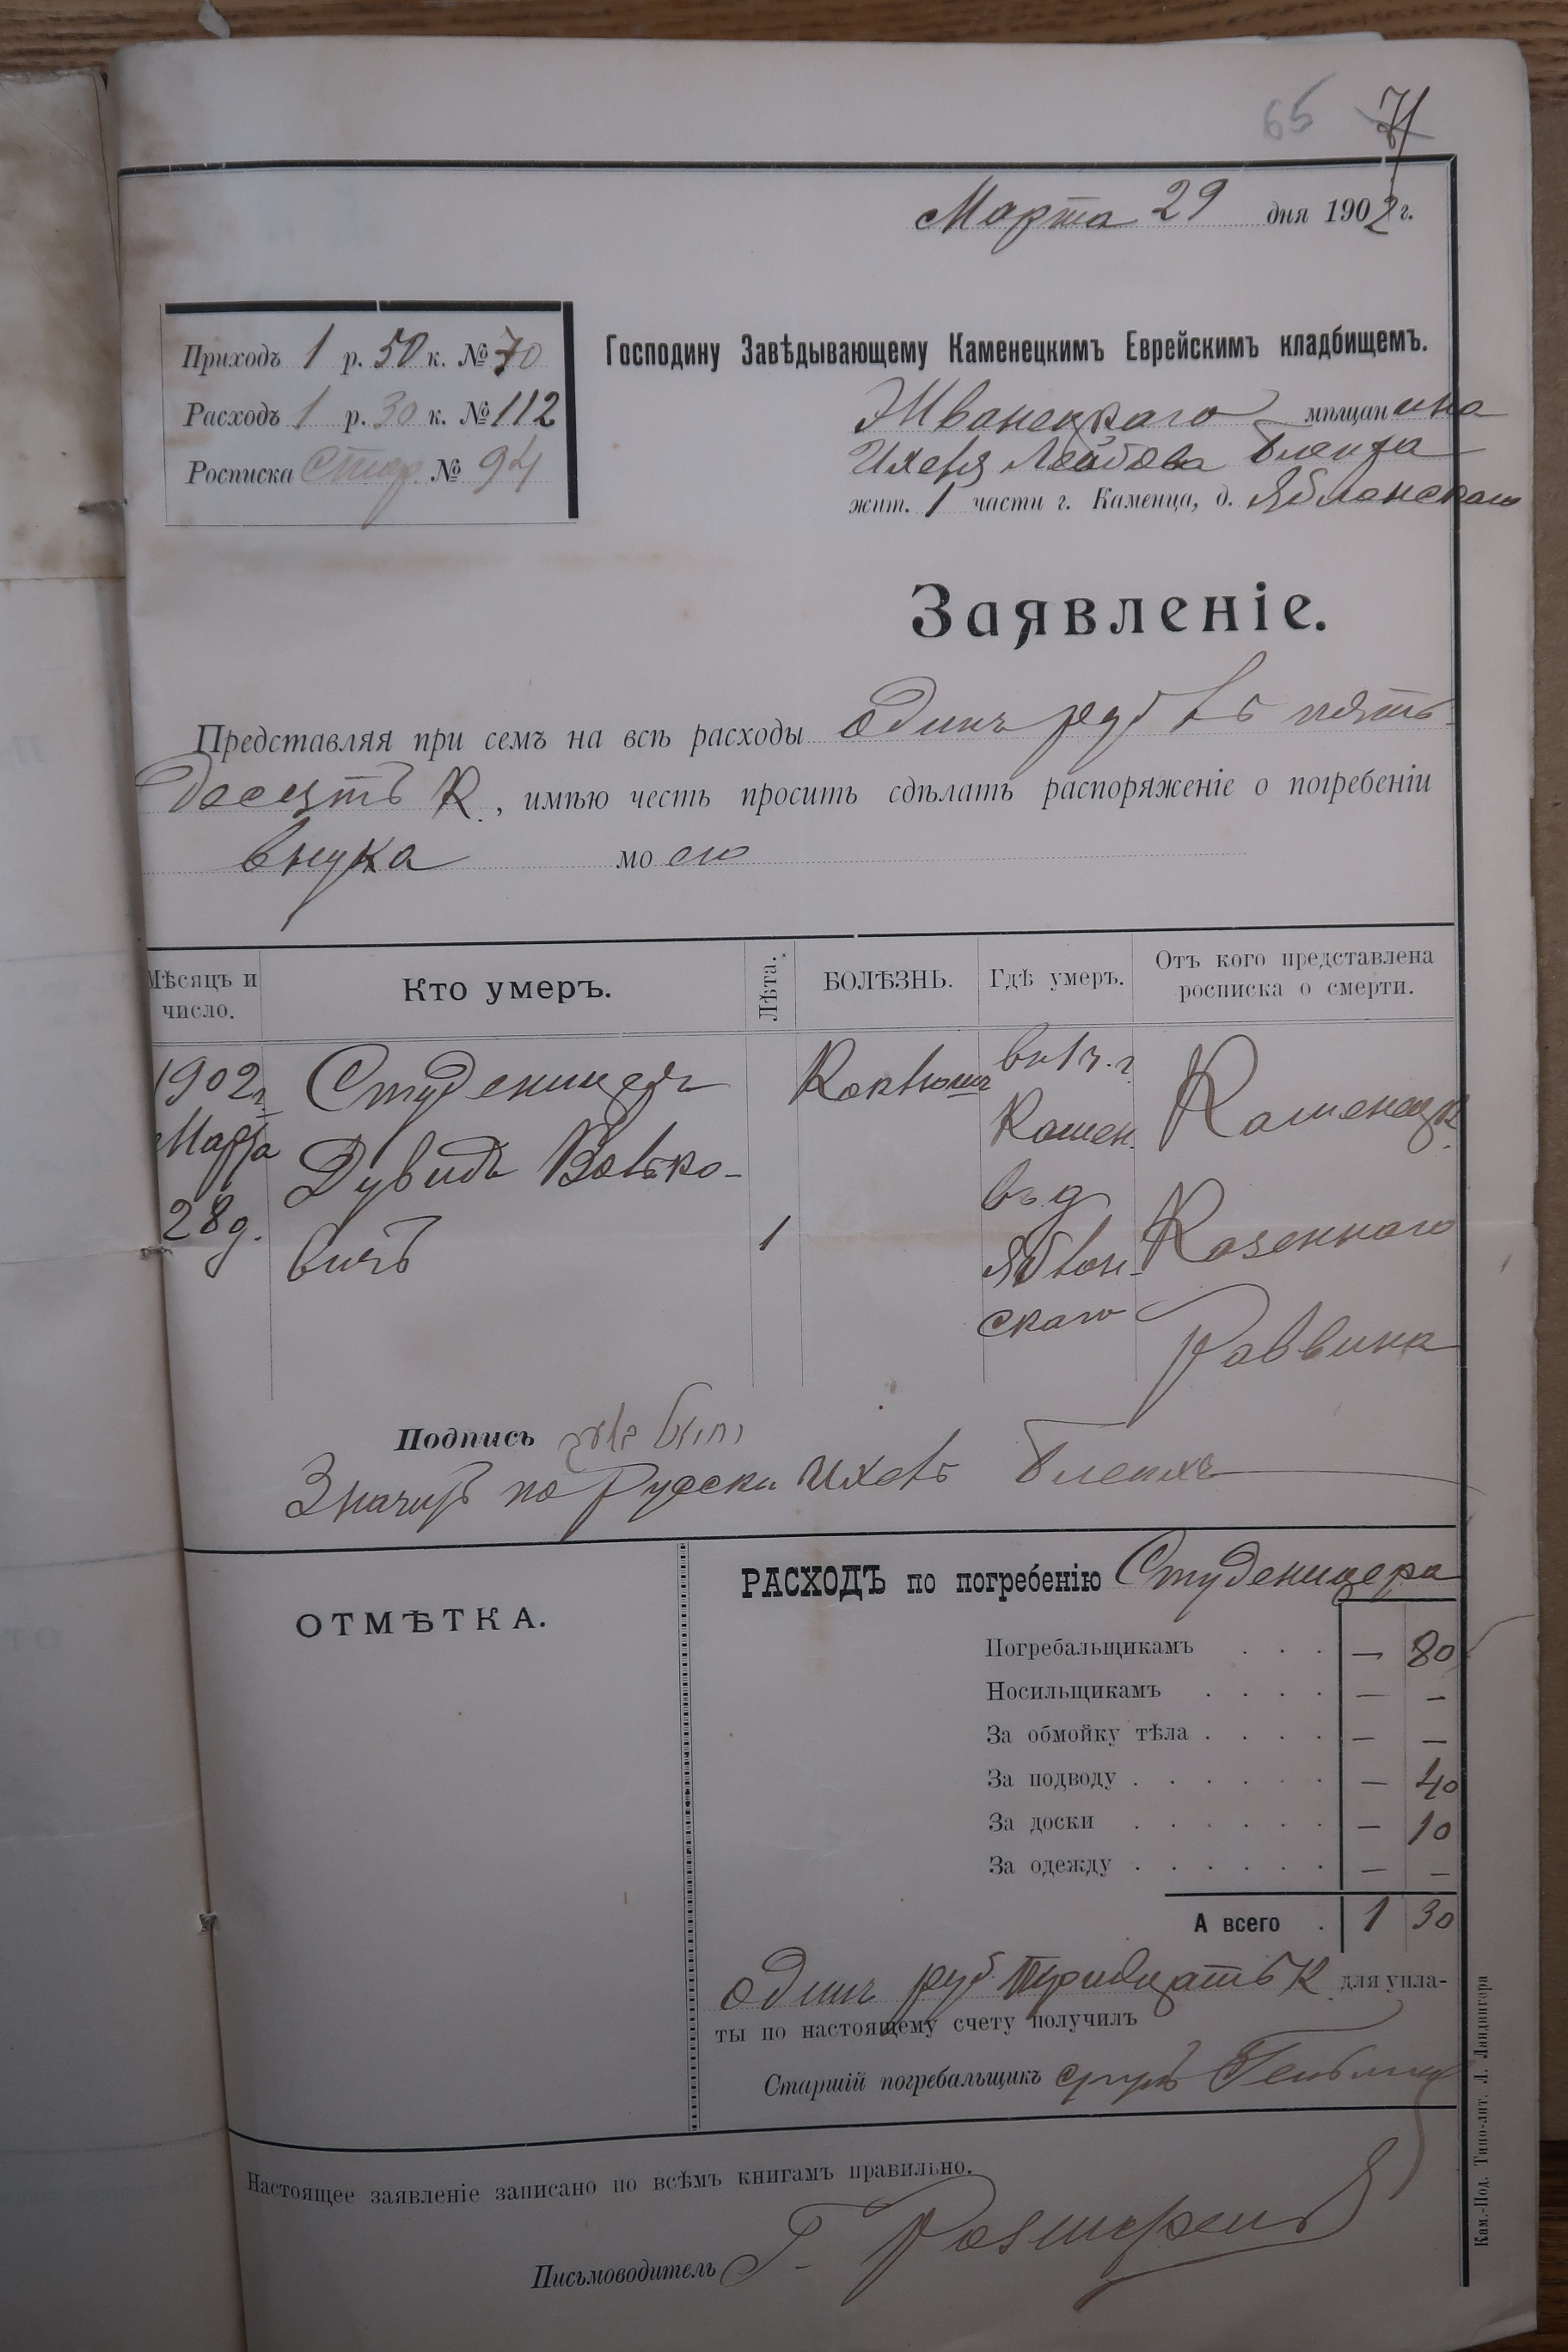 65 71
Марта 29 дня 1902 г.
Приходъ 1 р. 50 к. № 70
Расходъ 1 р. 30 к. № 112
Росписка Стар. № 94
Господину Завѣдывающему Каменецкимъ Еврейскимъ кладбищемъ.
Жванецкаго мѣщанина
Ихеля Лейбова
жит. 1 части г. Каменца, д. Яблонскаго
Заявленіе.
Представляя при семъ на всѣ расходы одинъ руб пять-
десятъ К., имѣю честь просить сдѣлать распоряженіе о погребеніи
внука моего
Мѣсяцъ и число.
Кто умеръ.
Лѣта.
БОЛѢЗНЬ.
Гдѣ умеръ.
Отъ кого представлена росписка о смерти.
1902 г. Марта 28 д.
Студеницеръ Дувидъ Волько-вичъ
1
Коклюшъ
въ 1 ч. г. Камен. въ д Яблон-скаго
Каменецк. Казеннаго Раввина
Подпись
Значитъ по Русски Ихель
ОТМѢТКА.
РАСХОДЪ по погребенію Студеницера
Погребальщикамъ . . . — 80
Носильщикамъ . . . . — -
За обмойку тѣла . . . . — —
За подводу . . . . . . — 40
За доски . . . . . . — 10
За одежду . . . . . . — —
А всего . 1 30
одинъ руб. тридцать К. для упла-
ты по настоящему счету получилъ
Старшій погребальщикъ
Настоящее заявленіе записано по всѣмъ книгамъ правильно.
Письмоводитель Г.
Кам.-Под. Типо-лит. Л. Ландвигера